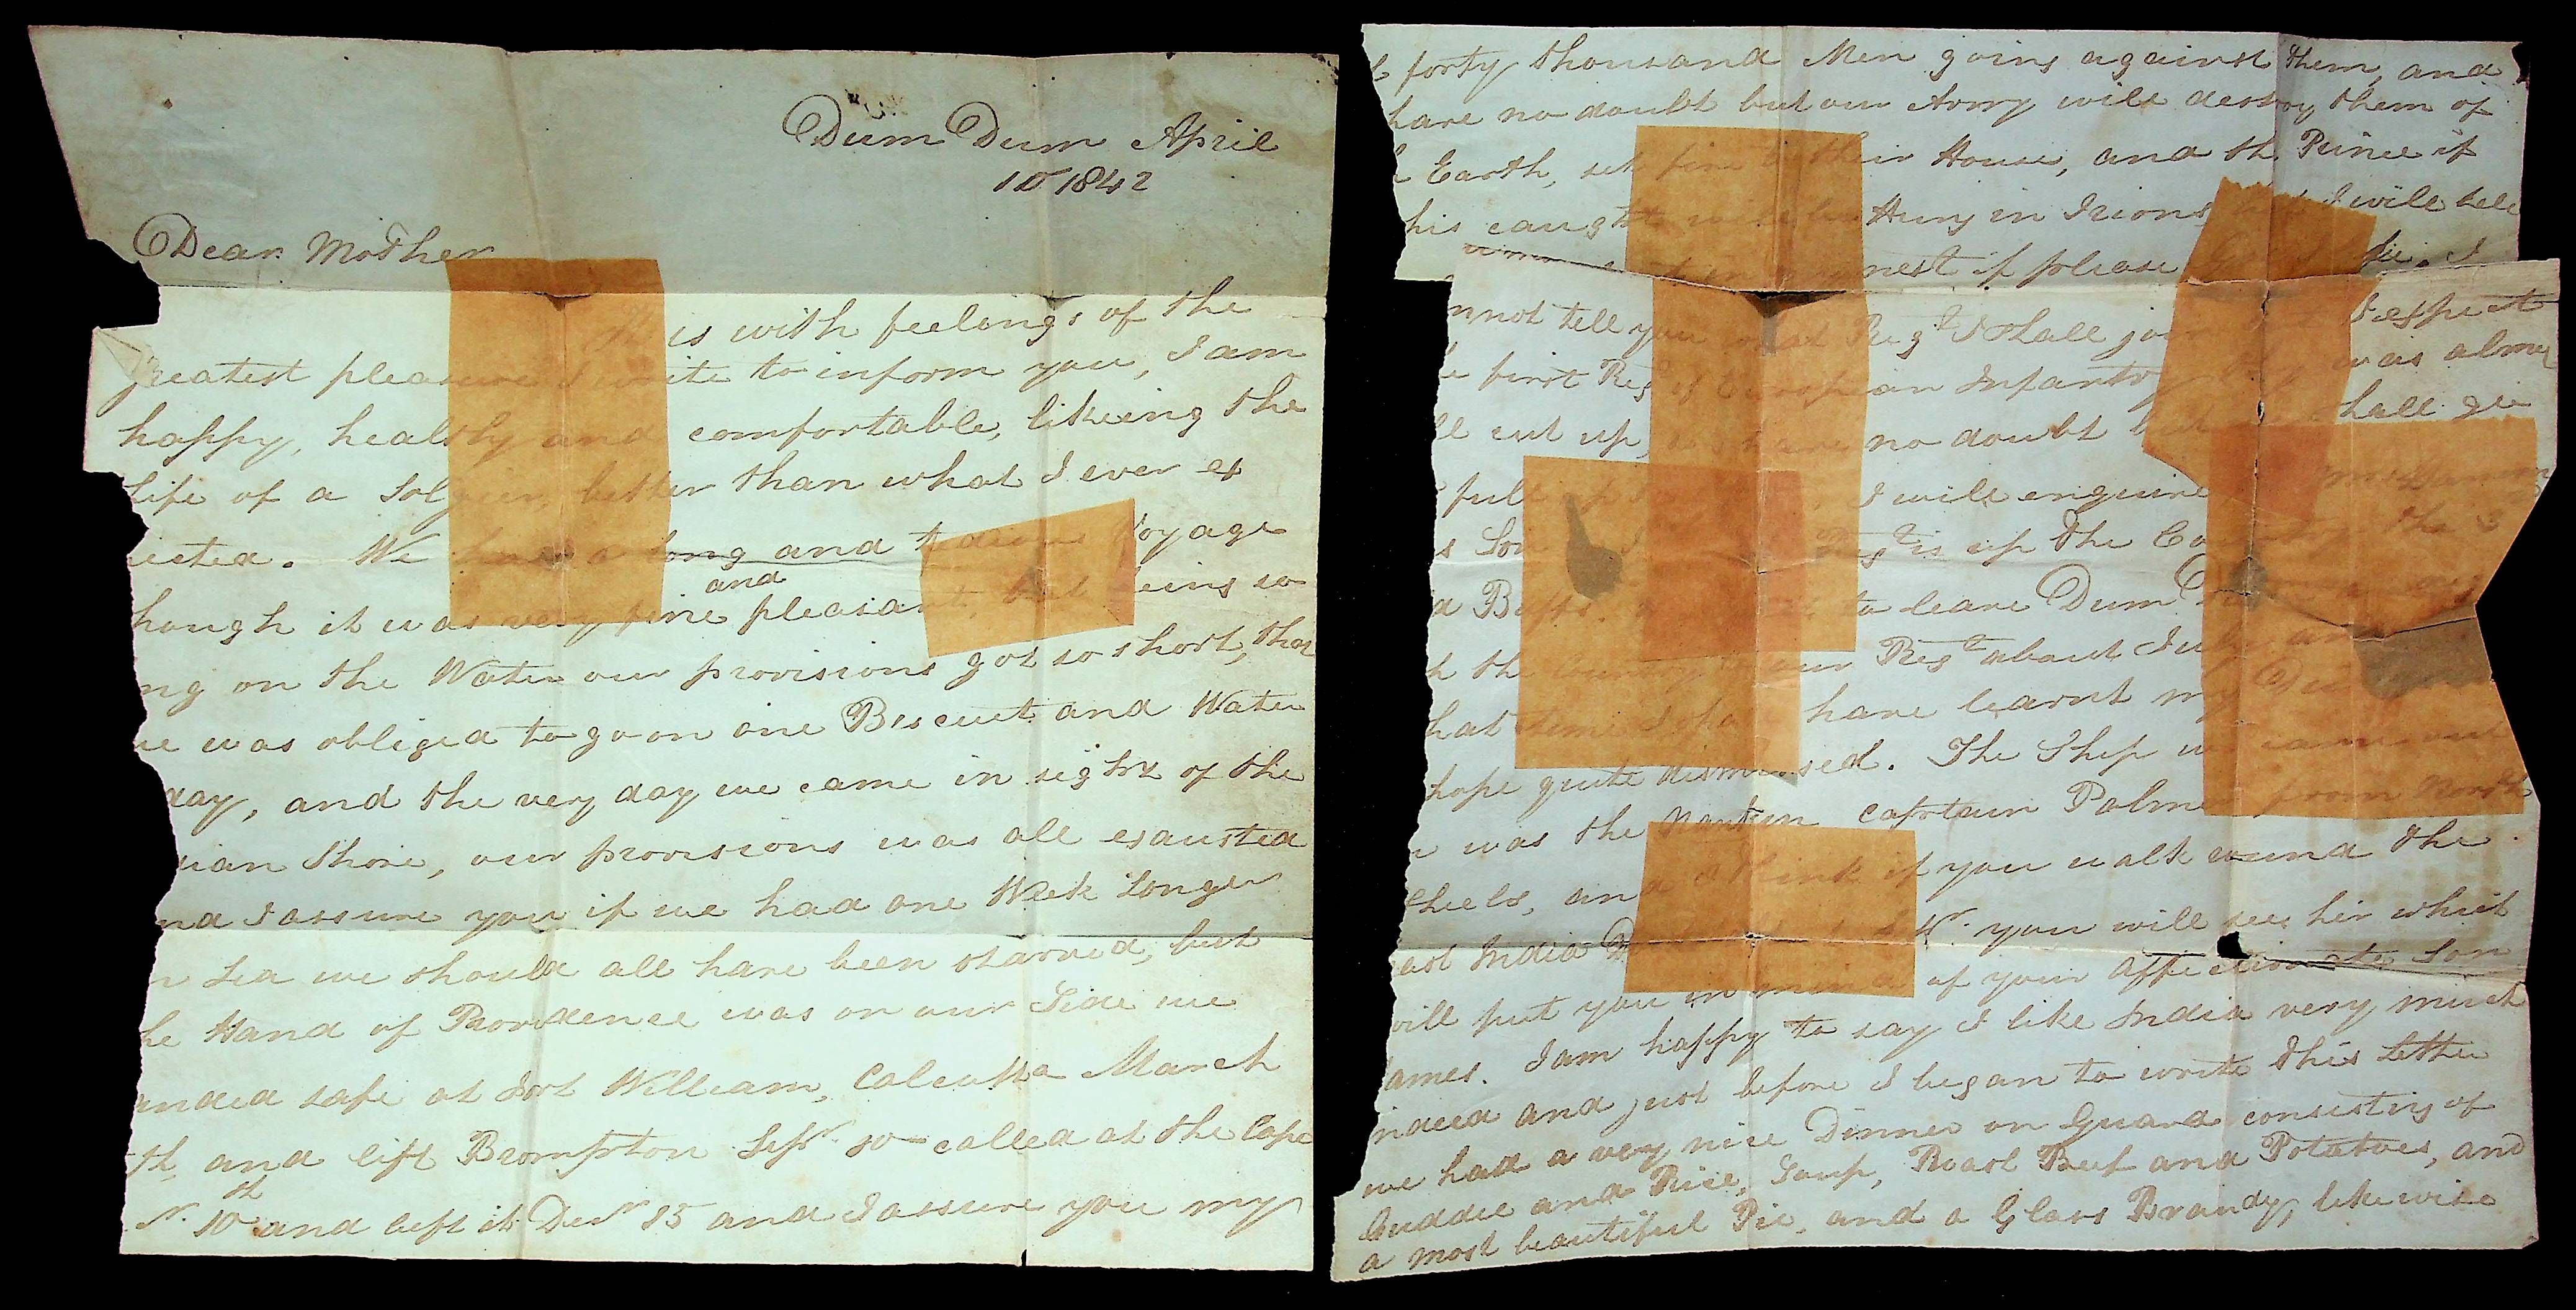 Dum Dum April
10 1842
Dear Mother
It is with feelings of the
greatest pleasure I write to inform you, I am
happy, healthy and comfortable, likeing the
life of a Solgier, better than what I ever ex
ected. We had a long and tedious Voyage
hough it was very fine and pleasant, but being so
ng on the Water our provisions got so short, that
we was obliged to go on one Biscuit and Water
day, and the very day we came in sight of the
dian Shore, our provisions was all exausted
nd I assure you if we had one Week longer
n Sea we should all have been starved, but
he Hand of Providence was on our Side we
anded safe at Fort William, Calcutta March
th, and left Brompton Sepr 10 called at the Cape
10th and left it Decr 15 and I assure you my
forty thousand Men going against them, and
have no doubt but our Army will destroy them of
Earth, set fire to their House, and the Prince if
his caught will be Hung in Irions, but I will tell
nest if please God I live. I
nnot tell you what Regt I shall join I expect
e first Regt of European Infantry they was almost
ll cut up, I have no doubt but shall go
full I will enquire
s Son Regt is up the Country the 3
d Buffs. to leave Dum Dum
the country our Regt about July and
hat time I shall have learnt my
hope quite dismissed. The Ship we came out
n was the Nankin Captain Palmer from North
Sheels, and I think if you walk round the
ast India you will see her which
will put you in mind of your Affectionate Son
ames. I am happy to say I like India very much
indeed and just before I began to write this Letter
we had a very nice Dinner on Guard consisting of
Cuddie and Rice, Soup, Roast Beef and Potatoes, and
a most beautiful Pie, and a Glass Brandy, likewise